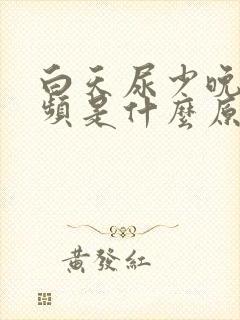 白天尿少晚
頻是什麼原
黃發紅